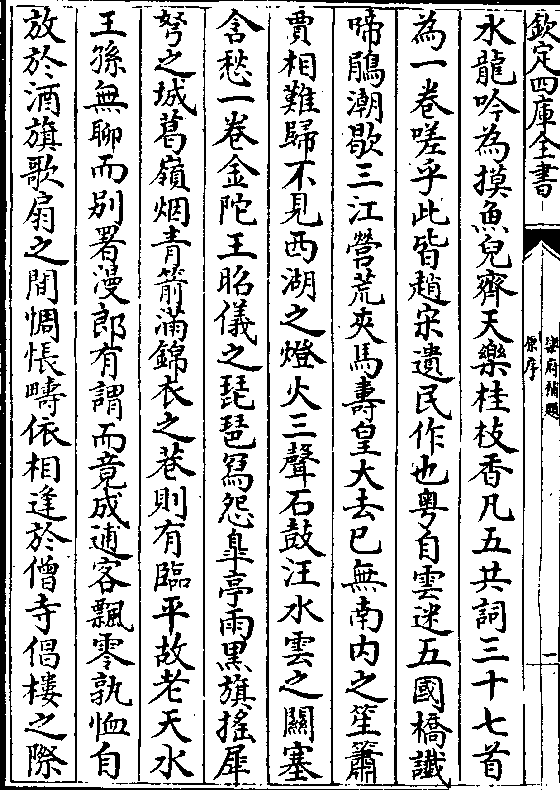 欽定四庫全書
樂府補題
原序
一
水龍吟為摸魚兒齊天樂桂枝香凡五共詞三十七首
為一卷嗟乎此皆趙宋遺民作也粤自雲迷五國橋䜟
啼鵑潮歇三江營荒夾馬壽皇大去已無南内之笙簫
賈相難歸不見西湖之燈火三聲石鼓汪水雲之關塞
含愁一卷金陀王昭儀之琵琶冩怨臯亭雨黒旗搖犀
弩之城葛嶺烟青箭滿錦衣之巷則有臨平故老天水
王孫無聊而别署漫郎有謂而竟成逋客飄零孰恤自
放於酒旗歌扇之間惆悵疇依相逢於僧寺倡樓之際